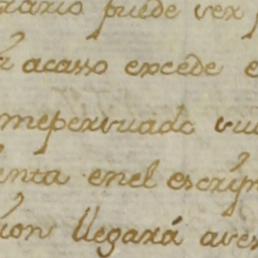 rario puede ver
acasso excede e
mepersuado vue
enta enel escryn
ion llegará aver